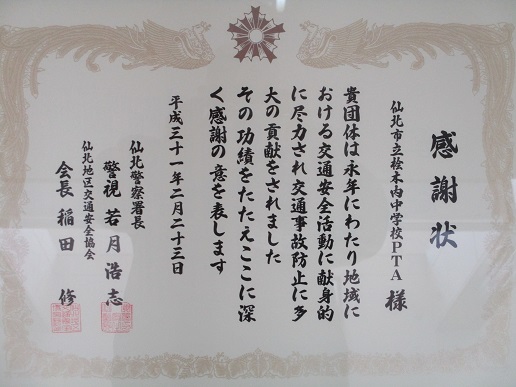 感謝状
仙北市立桧木内中学校PTA 様
貴団体は永年にわたり地域に
おける交通安全活動に献身的
に尽力され交通事故防止に多
大の貢献をされました
その功績をたたえここに深
く感謝の意を表します
平成三十一年二月二十三日
仙北警察署長
警視 若月浩志
仙北地区交通安全協会
会長 稲田 修